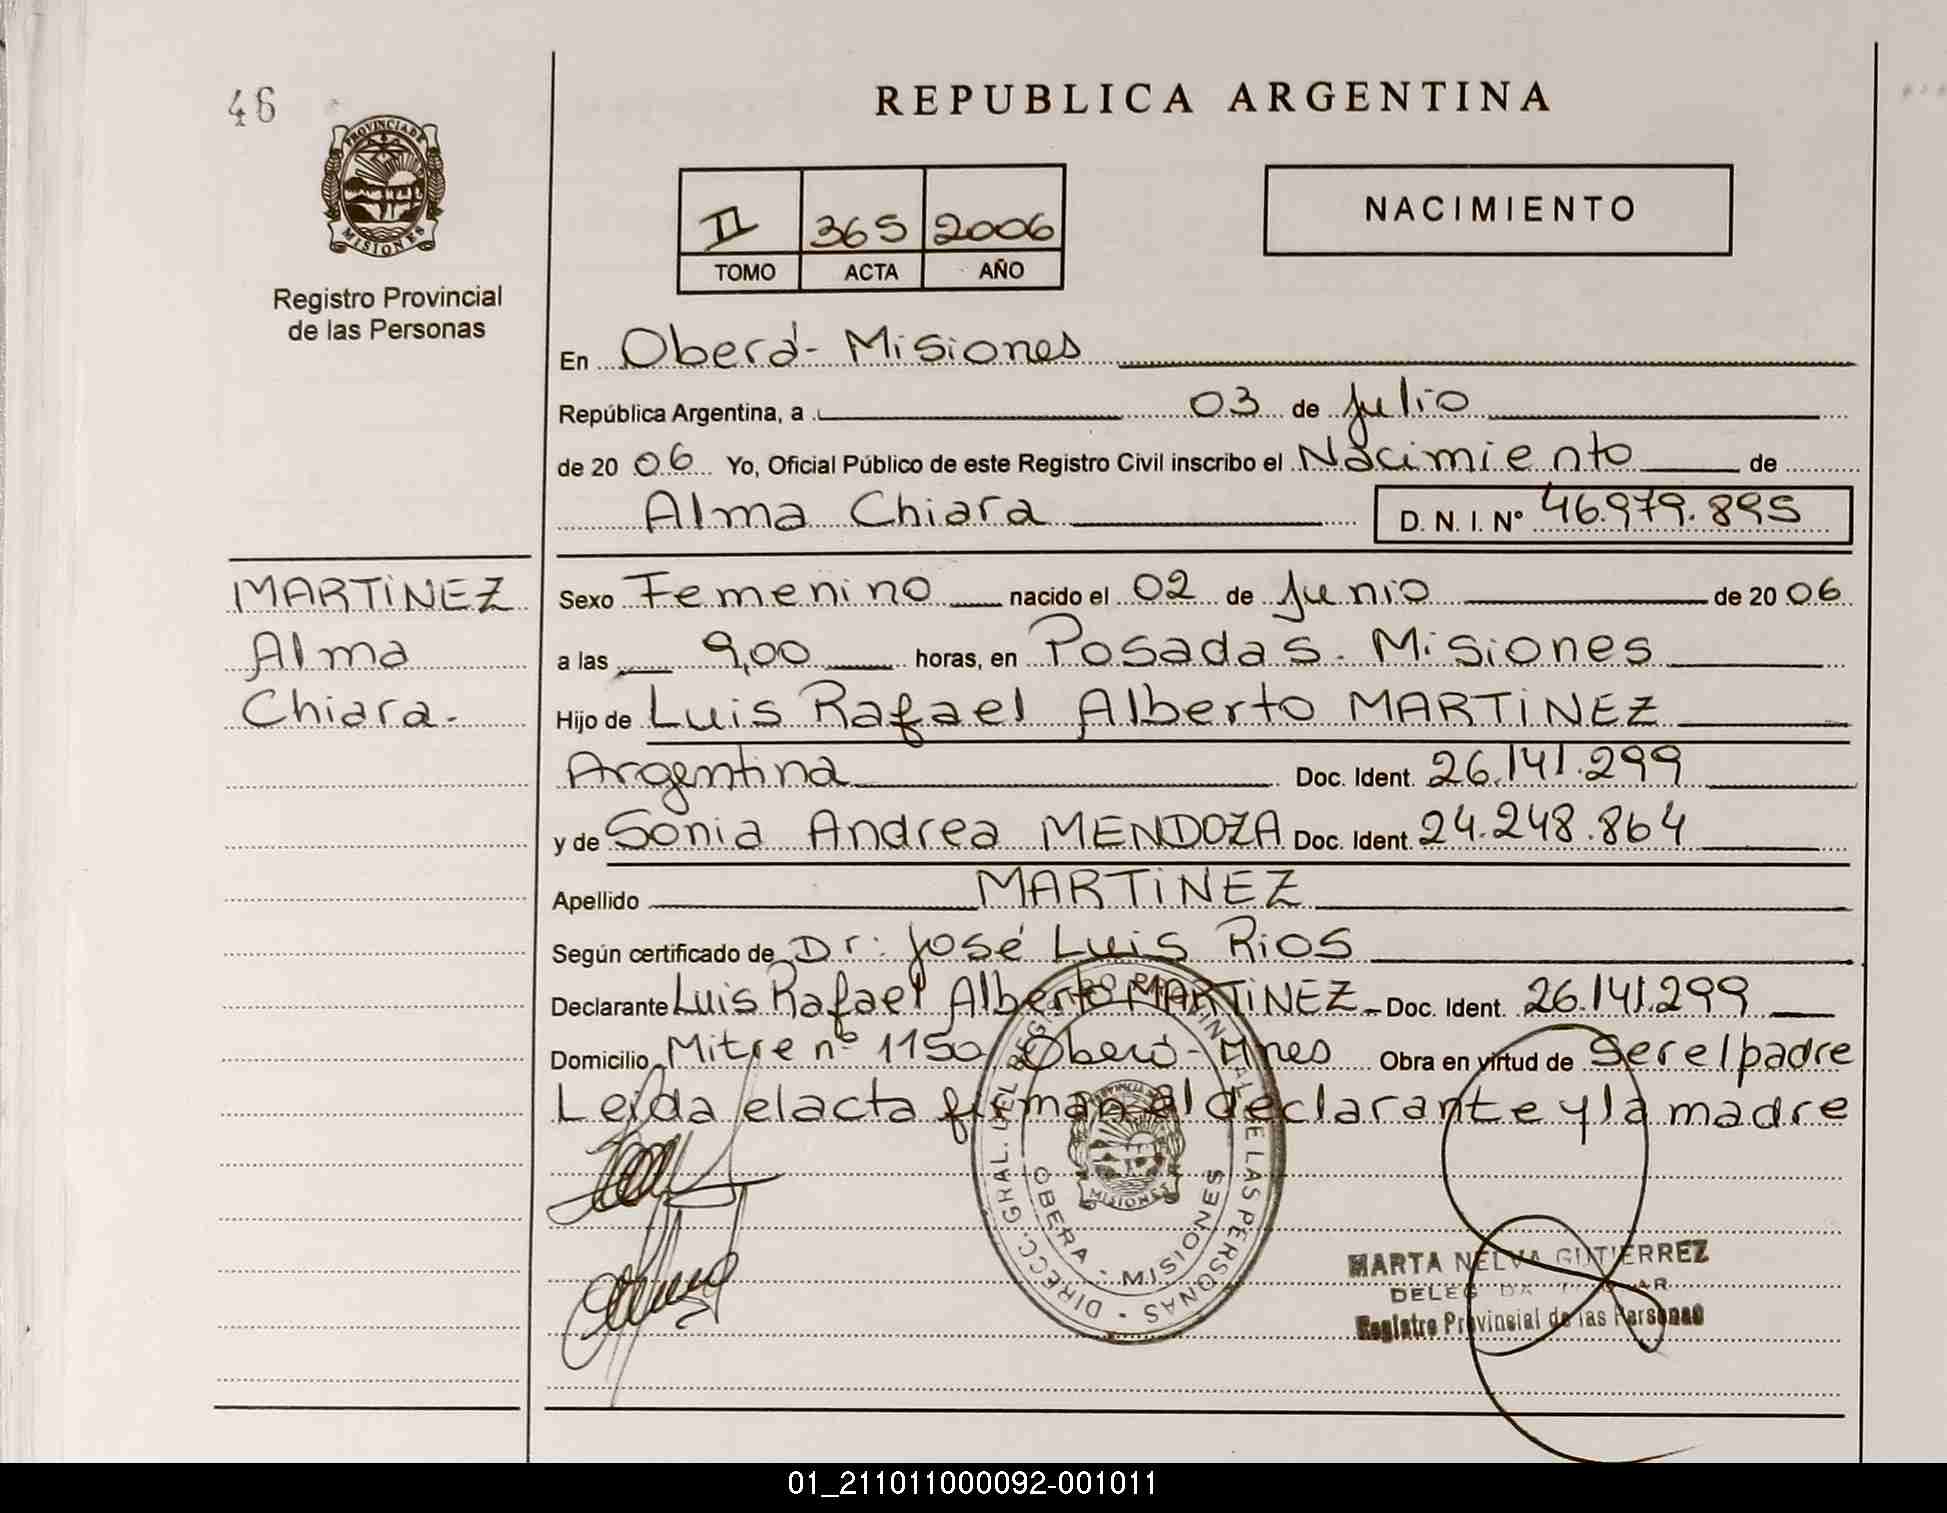 46
REPUBLICA ARGENTINA
PROVINCIA DE
MISIONES
Registro Provincial
de las Personas
II 365 2006
TOMO ACTA AÑO
NACIMIENTO
En Oberá - Misiones
República Argentina, a 03 de Julio
de 20 06 Yo, Oficial Público de este Registro Civil inscribo el Nacimiento de
Alma Chiara D. N. I. Nº 46.979.895
MARTINEZ
Alma
Chiara.-
Sexo Femenino nacido el 02 de Junio de 20 06
a las 9,00 horas, en Posadas. Misiones
Hijo de Luis Rafael Alberto MARTINEZ
Argentina Doc. Ident. 26.141.299
y de Sonia Andrea MENDOZA Doc. Ident. 24.248.864
Apellido MARTINEZ
Según certificado de Dr: José Luis Rios
Declarante Luis Rafael Alberto MARTINEZ - Doc. Ident. 26.141.299
Domicilio Mitre nº 1150 Oberá - Mnes Obra en virtud de ser el padre
Leida el acta firman al declarante y la madre
DIRECC. GRAL. DEL REGISTRO PROVINCIAL DE LAS PERSONAS
OBERA - MISIONES
MISIONES
MARTA NELVA GUTIERREZ
Registro Provincial de las Personas
01_211011000092-001011